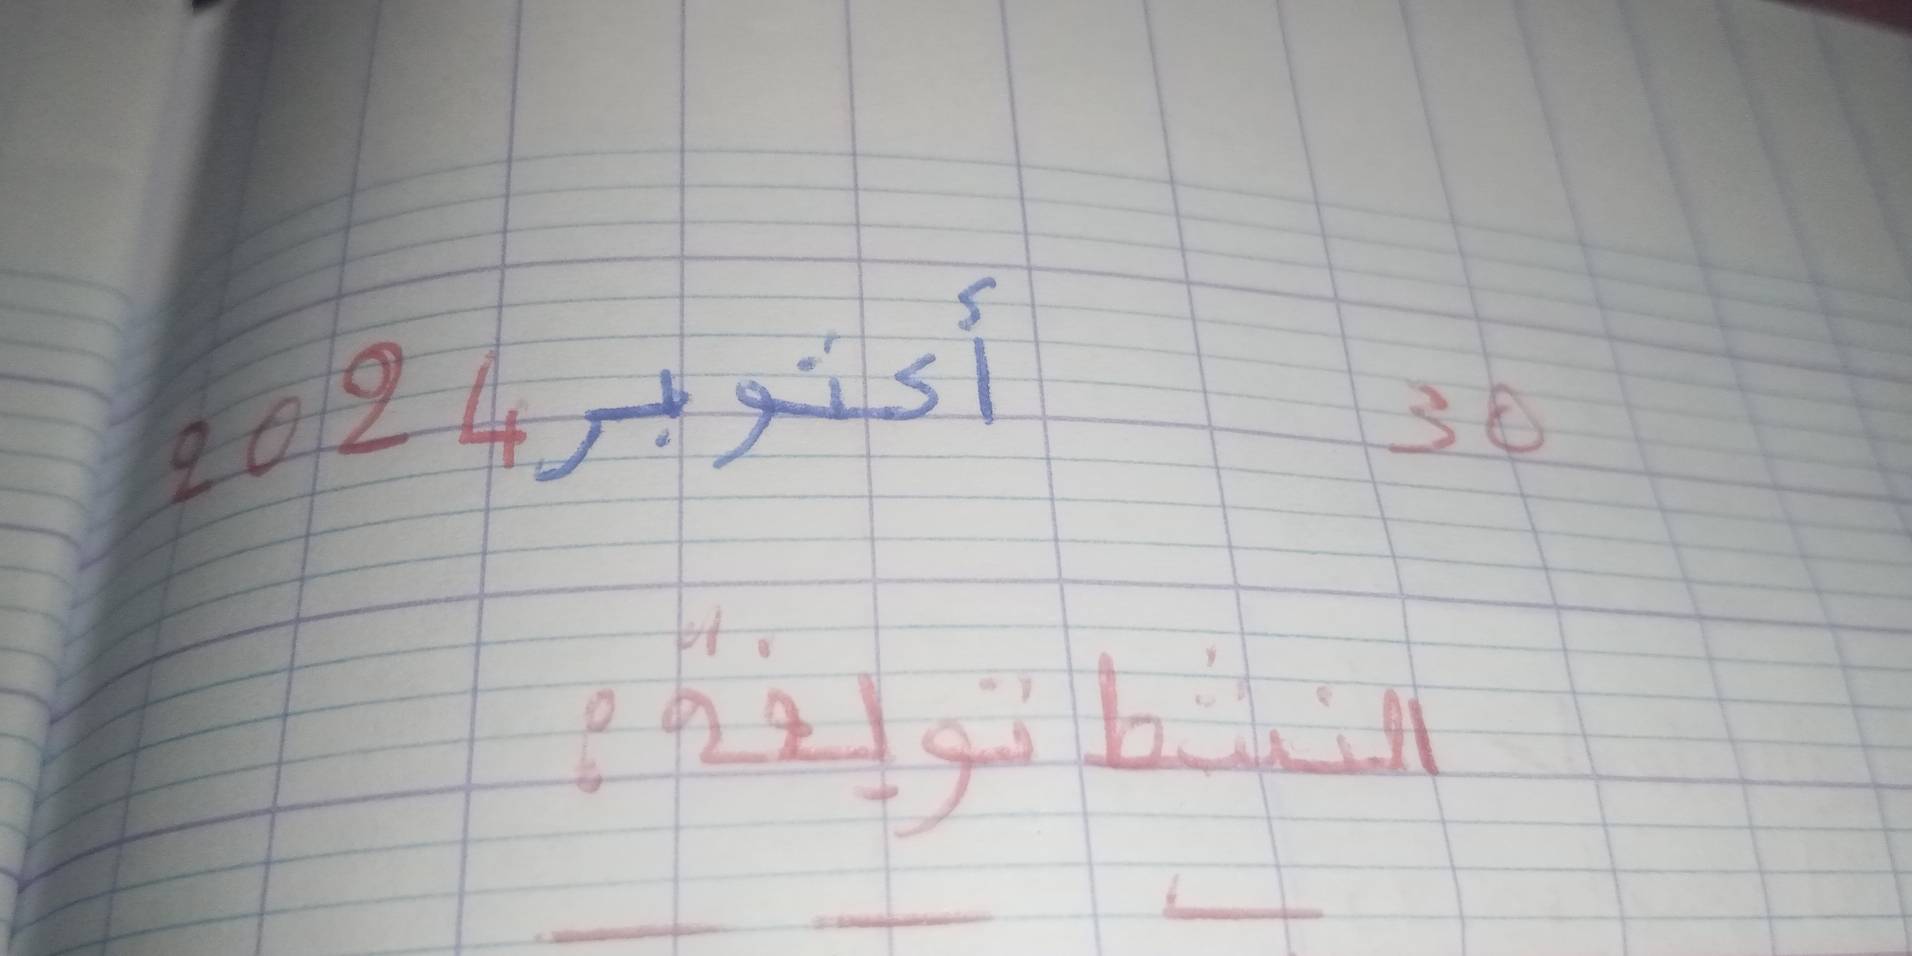 30 أكتوبر 2024
النشط توليفة :